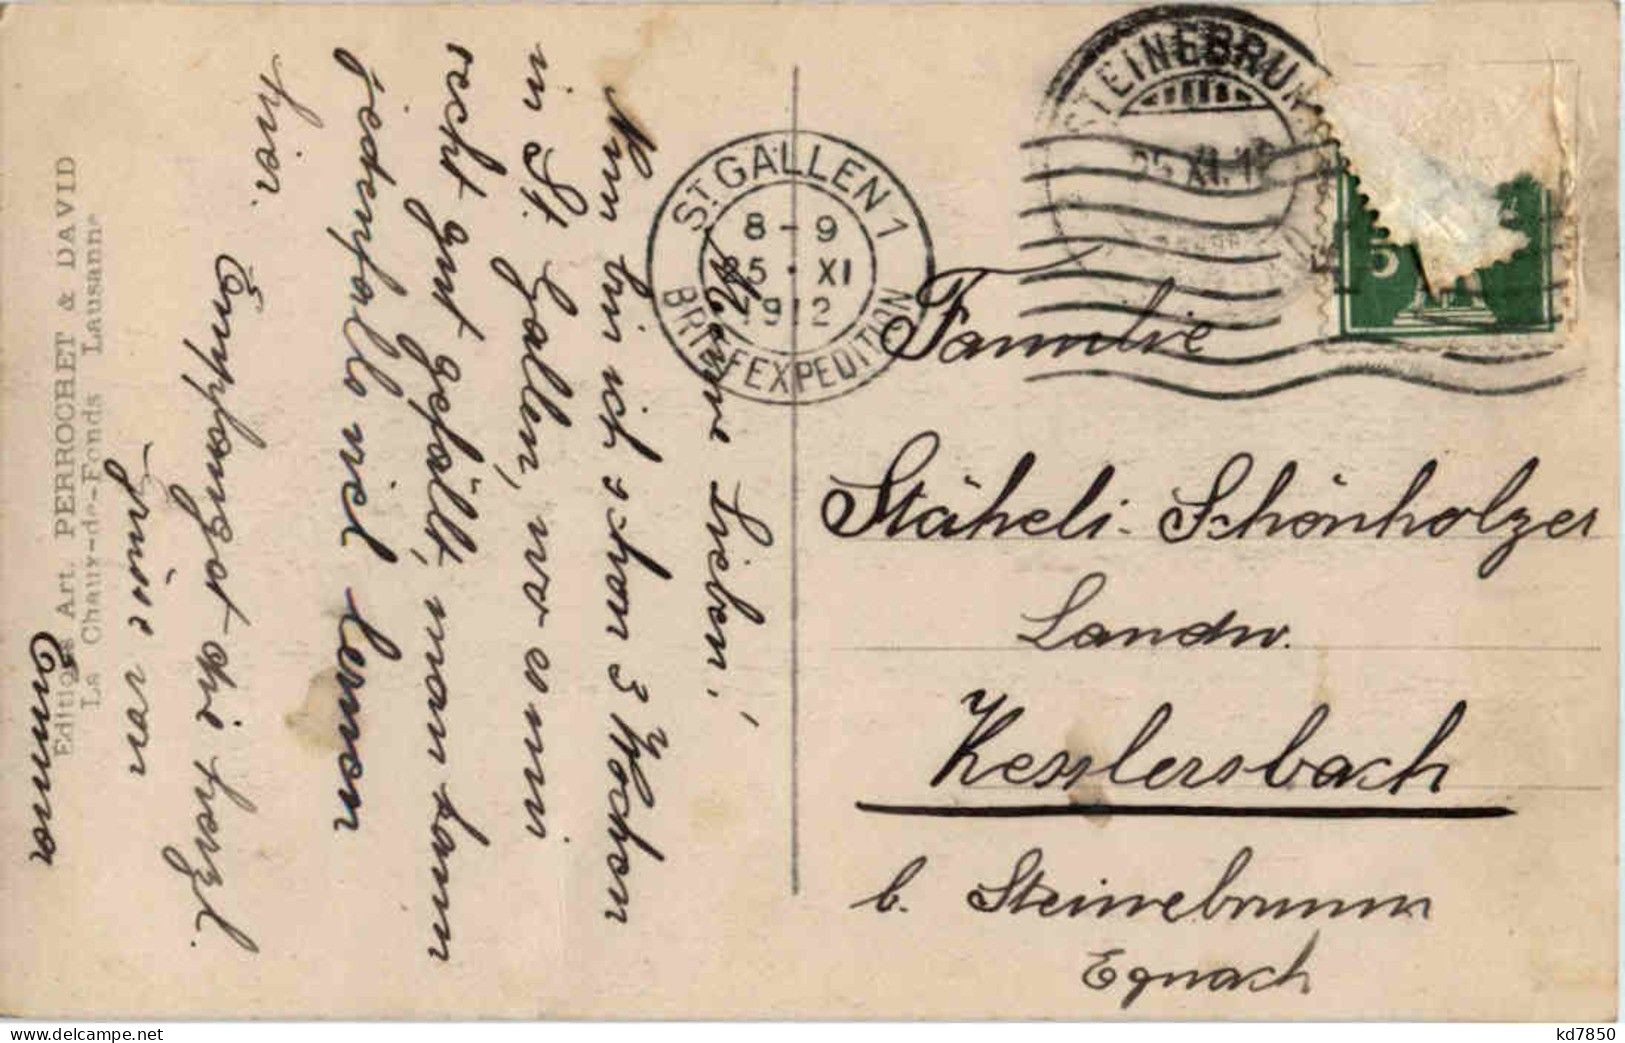 Meine Lieben!
Nun bin ich schon 3 Wochen
in St. Gallen, wo es mir
recht gut gefällt, man kann
jedenfalls viel lernen
hier.
Empfanget die herzl.
Grüsse von
Emma
Editions Art. PERROCHET & DAVID
La Chaux-de-Fonds Lausanne
ST GALLEN 1
8-9
25. XI
1912
BRIEFEXPEDITION
STEINEBRUNN
25. XI. 12
5
Familie
Stäheli-Schönholzer
Landw.
Kesslersbach
b. Steinebrunn
Egnach
kd7850